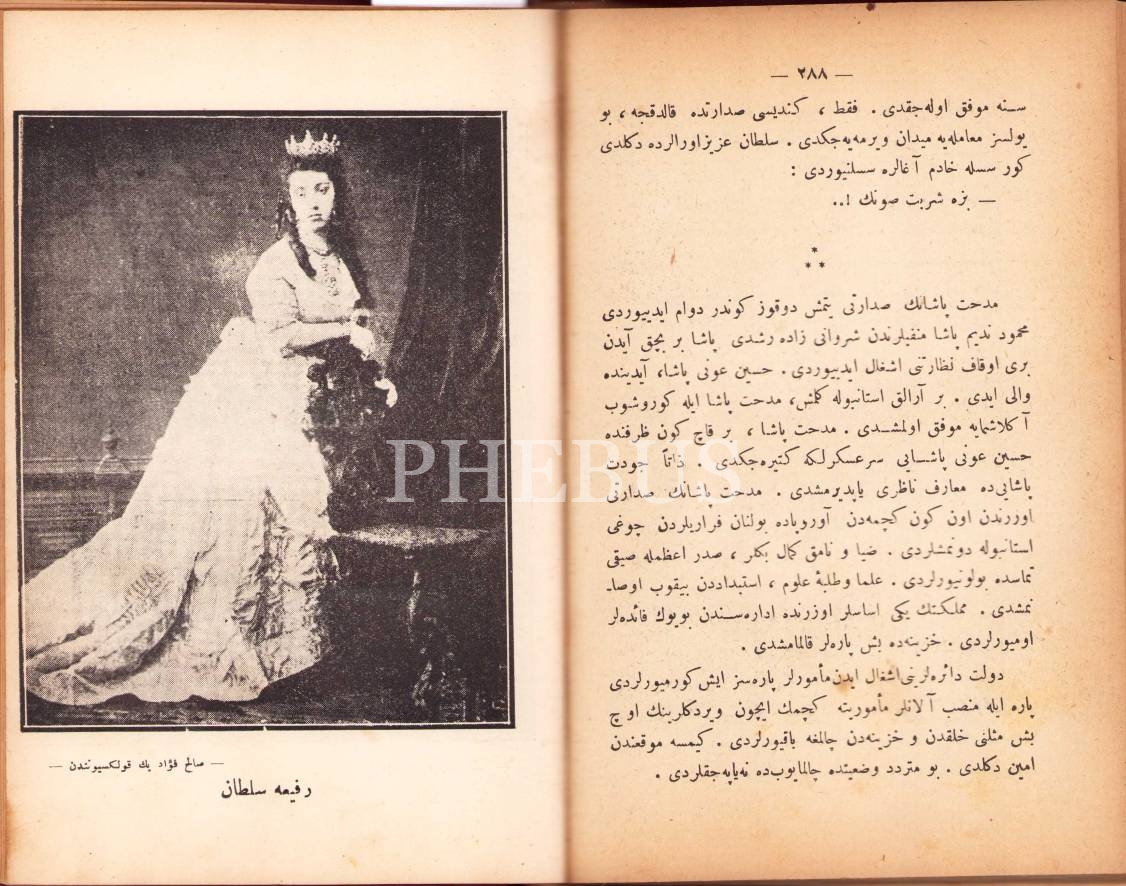 — ٢٨٨ —
سـنه موفق اوله‌جقدی . فقط ، كندیسی صدارتده قالدقجه ، بو
یولسز معامله‌یه میدان ویرمه‌یه‌جكدی . سلطان عزیز اورالرده دكلدی
كور سسله خادم آغالره سسلنیوردی :
— بزه شربت صونك !..
* * *
مدحت پاشانك صدارتی یتمش دوقوز كوندر دوام ایدییوردی
محمود ندیم پاشا منفیلرندن شروانی زاده رشدی پاشا بر بچق آیدن
بری اوقاف نظارتی اشغال ایدییوردی . حسین عونی پاشا، آیدینده
والی ایدی . بر آرالق استانبوله كلمش، مدحت پاشا ایله كوروشوب
آكلاشمایه موفق اولمشـدی . مدحت پاشا ، بر قاچ كون ظرفنده
حسین عونی پاشـایی سرعسكرلكه كتیره‌جكدی . ذاتاً جودت
پاشایی‌ده معارف ناظری یاپدیرمشدی . مدحت پاشانك صدارتی
اوزرندن اون كون كچمه‌دن آوروپاده بولنان فراریلردن چوغی
استانبوله دونمشلردی . ضیا و نامق كمال بكلر ، صدر اعظمله صیقی
تماسده بولونیورلردی . علما وطلبۀ علوم ، استبداددن بیقوب اوصا-
نمشدی . مملكتك یكی اساسلر اوزرنده اداره‌سـندن بویوك فائده‌لر
اومیورلردی . خزینه‌ده بش پاره‌لر قالمامشدی .
دولت دائره‌لرینی اشغال ایدن مأمورلر پاره‌سز ایش كورمیورلردی
پاره ایله منصب آلانلر مأموریته كچمك ایچون ویردكلرینك اوچ
بش مثلنی خلقدن و خزینه‌دن چالمغه باقیورلردی . كیمسه موقعندن
امین دكلدی . بو متردد وضعیتده چالمایوب‌ده نه‌یاپه‌جقلردی .
— صالح فؤاد بك قولكسیونندن —
رفیعه سلطان
PHEBUS